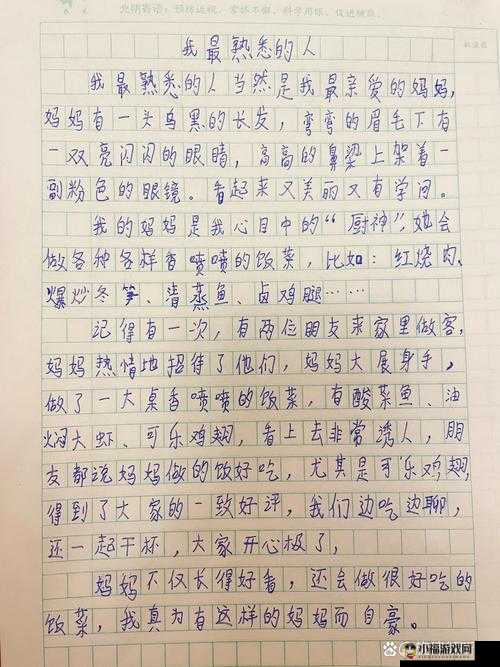 我最熟悉的人
我最熟悉的人当然是我最亲爱的妈妈,
妈妈有一头乌黑的长发,弯弯的眉毛下有
一双亮闪闪的眼睛,高高的鼻梁上架着一
副粉色的眼镜。看起来又美丽又有学问。
我的妈妈是我心目中的“厨神”,她会
做各种各样香喷喷的饭菜,比如:红烧肉、
爆炒冬笋、清蒸鱼、卤鸡腿……
记得有一次,有两位朋友来家里做客,
妈妈热情地招待了他们,妈妈大展身手。
做了一大桌香喷喷的饭菜,有酸菜鱼、油
焖大虾、可乐鸡翅,看上去非常诱人,朋
友都说妈妈做的饭好吃,尤其是可乐鸡翅,
得到了大家的一致好评,我们边吃边聊,
还一起干杯,大家开心极了,
妈妈不仅长得好看,还会做很好吃的
饭菜,我真为有这样的妈妈而自豪。
小福游戏网